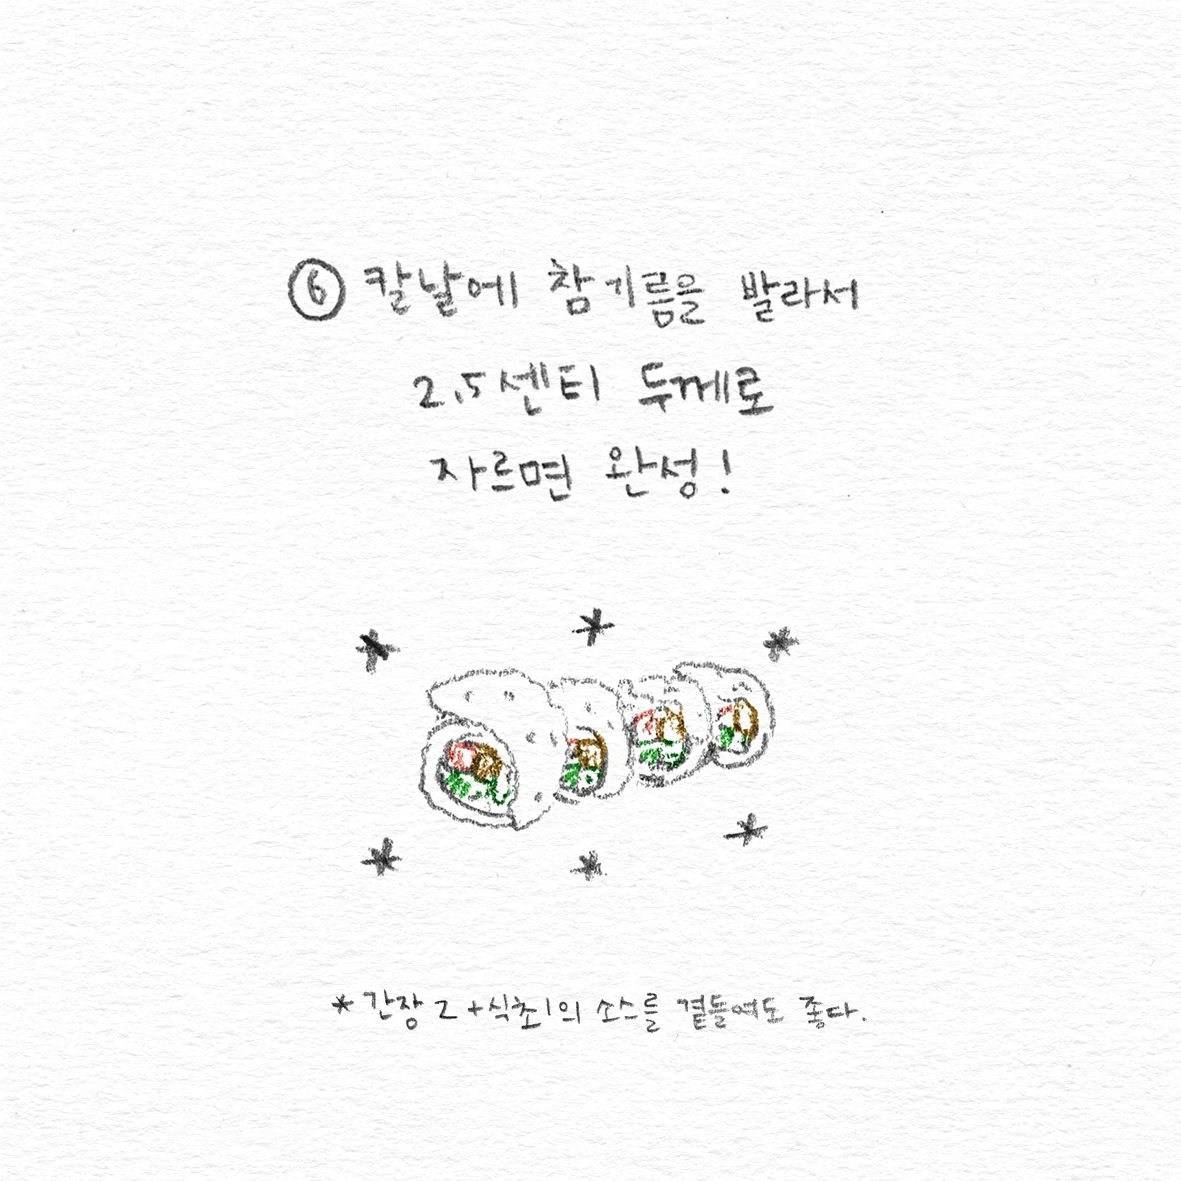 ⑥ 칼날에 참기름을 발라서
2.5센티 두께로
자르면 완성!
* 간장2+식초1의 소스를 곁들여도 좋다.